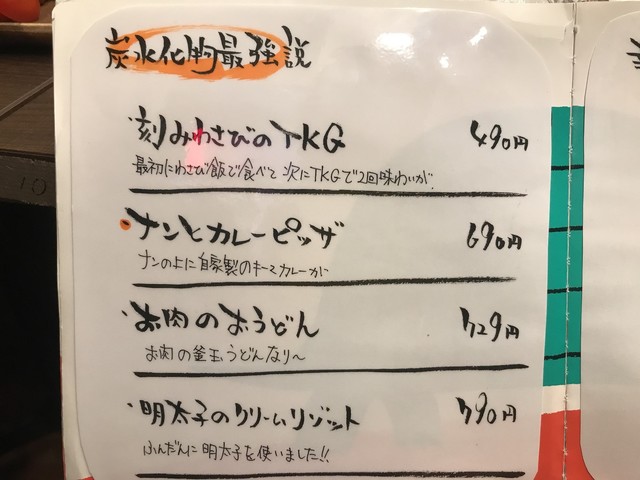 炭水化物最強説
・刻みわさびのTKG 490円
最初にわさび飯で食べて 次にTKGで2回味わいが
・ナンとカレーピッザ 690円
ナンの上に自家製のキーマカレーが
・お肉のおうどん 729円
お肉の釜玉うどんなり〜
・明太子のクリームリゾット 790円
ふんだんに明太子を使いました!!
10